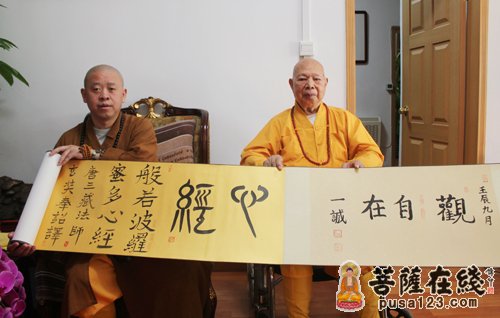 壬辰九月
觀自在
一誠
心經
般若波羅
蜜多心經
唐三藏法師
玄奘奉詔譯
菩薩在線
pusa123.com